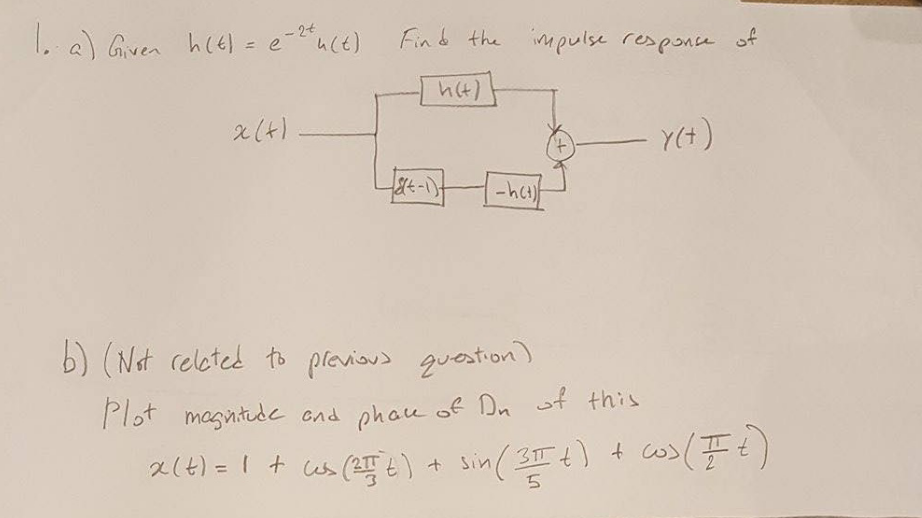 1. a) Given h(t) = e^{-2t} u(t) Find the impulse response of
h(t)
x(t)
+
y(t)
δ(t-1)
-h(t)
b) (Not related to previous question)
Plot magnitude and phase of Dn of this
x(t) = 1 + cos(2π/3 t) + sin(3π/5 t) + cos(π/2 t)